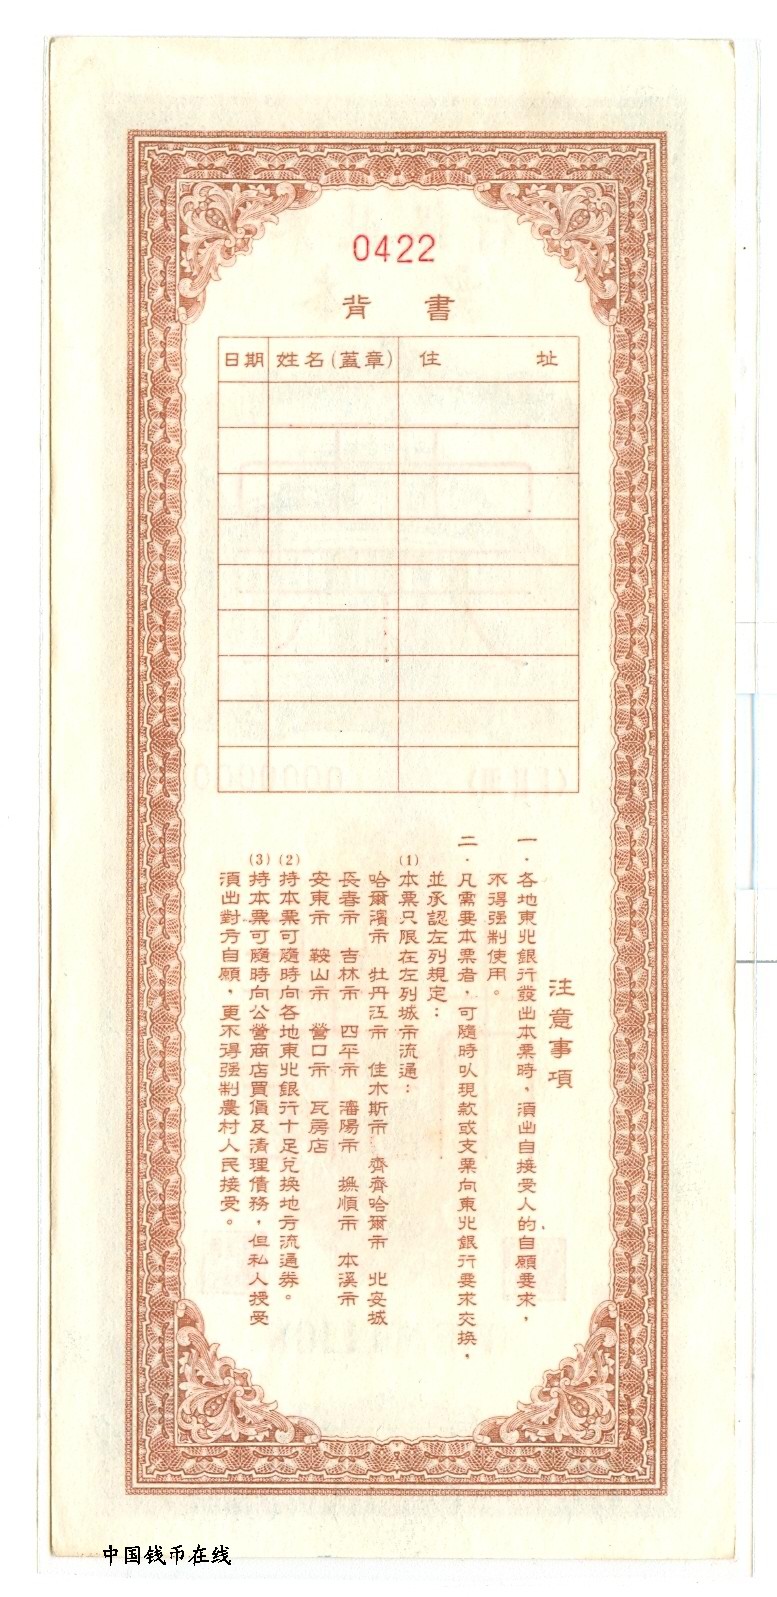 0422
背書
日期 姓名(蓋章) 住址
注意事項
一．各地東北銀行發出本票時，須出自接受人的自願要求，
不得强制使用。
二．凡需要本票者，可隨時以現款或支票向東北銀行要求交換，
並承認左列規定：
(1)本票只限在左列城市流通：
哈爾濱市 牡丹江市 佳木斯市 齊齊哈爾市 北安城
長春市 吉林市 四平市 瀋陽市 撫順市 本溪市
安東市 鞍山市 營口市 瓦房店
(2)持本票可隨時向各地東北銀行十足兌換地方流通券。
(3)持本票可隨時向公營商店買貨及清理債務，但私人授受
須出對方自願，更不得强制農村人民接受。
中国钱币在线